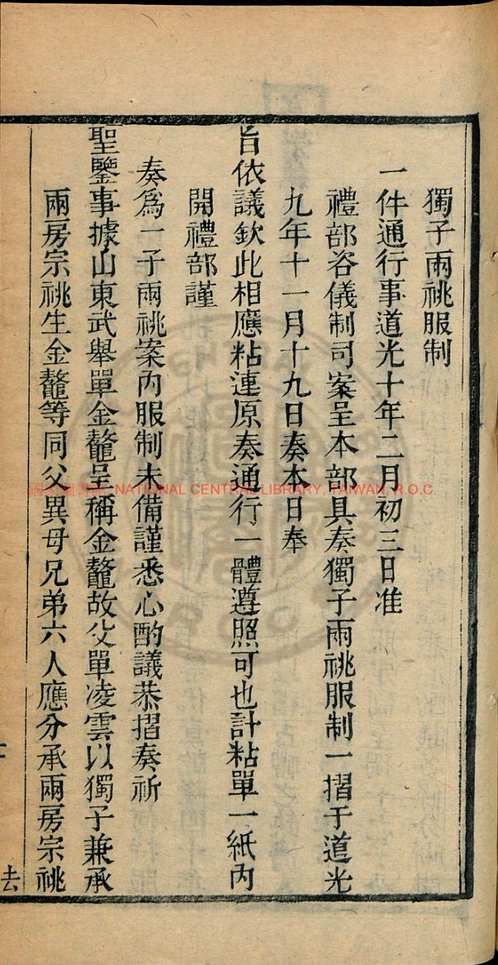 獨子兩祧服制
一件通行事道光十年二月初三日准
禮部咨儀制司案呈本部具奏獨子兩祧服制一摺于道光
九年十一月十九日奏本日奉
旨依議欽此相應粘連原奏通行一體遵照可也計粘單一紙內
開禮部謹
奏為一子兩祧案內服制未備謹悉心酌議恭摺奏祈
聖鑒事據山東武舉單金鼇呈稱金鼇故父單凌雲以獨子兼承
兩房宗祧生金鼇等同父異母兄弟六人應分承兩房宗祧
去
NATIONAL CENTRAL LIBRARY, TAIWAN, R.O.C